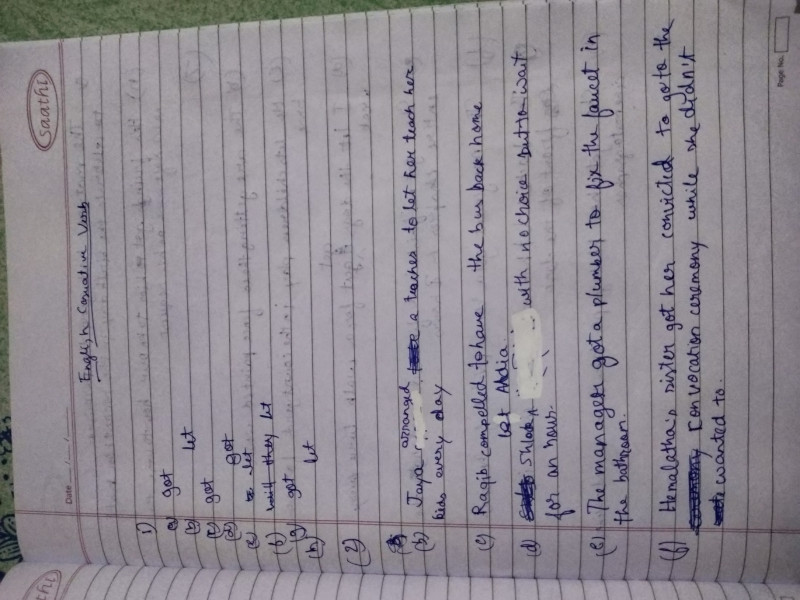 Saathi
Date ...../...../.....
English Causative Verb
1)
(a) got
(b) let
(c) got
(d) got
(e) to let
(f) will they let
(g) got
(h) let
(2)
(b) Jaya arranged a teacher to let her teach her
every day
(c) Ragib compelled to have the bus back home
(d) let with no choice but to wait
for an hour.
(e) The manager got a plumber to fix the faucet in
the bathroom.
(f) Hemalatha's sister got her convicted to go to the
convocation ceremony while she didn't
wanted to.
Page No.
thi